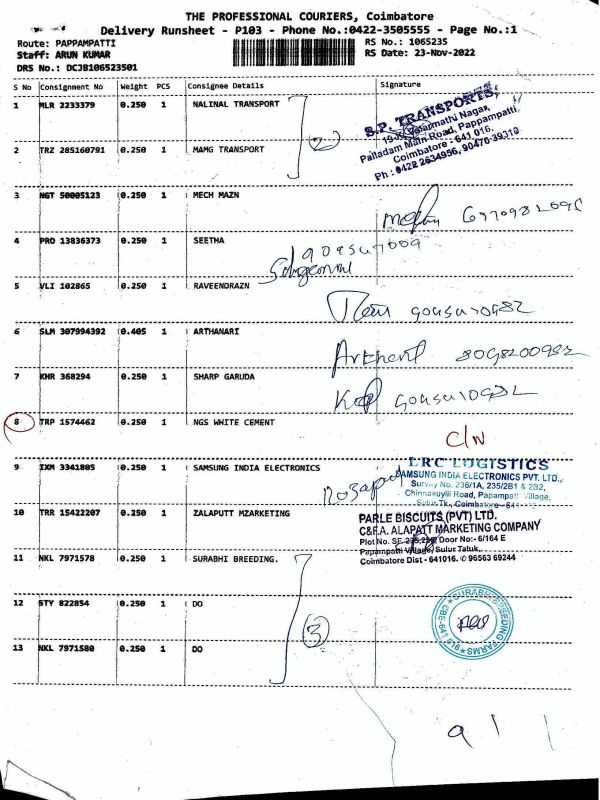 THE PROFESSIONAL COURIERS, Coimbatore
Delivery Runsheet - P103 - Phone No.:0422-3505555 - Page No.:1
Route: PAPPAMPATTI RS No.: 1065235
Staff: ARUN KUMAR RS Date: 23-Nov-2022
DRS No.: DCJB106523501
S No Consignment No Weight PCS Consignee Details Signature
1 MLR 2233379 0.250 1 NALINAL TRANSPORT
S.P. TRANSPORTS,
Nagar,
Palladam Main Road, Pappampatti
Coimbatore - 641 016.
Ph : 0422 2634956, 90476 39310
2 TRZ 285160791 0.250 1 MAMG TRANSPORT
2
3 NGT 50005123 0.250 1 MECH MAZN
4 PRO 13836373 0.250 1 SEETHA
5 VLI 102865 0.250 1 RAVEENDRAZN
6 SLM 307994392 0.405 1 ARTHANARI
7 KHR 368294 0.250 1 SHARP GARUDA
8 TRP 1574462 0.250 1 NGS WHITE CEMENT
C/N
9 IXM 3341805 0.250 1 SAMSUNG INDIA ELECTRONICS
LRC LOGISTICS
SAMSUNG INDIA ELECTRONICS PVT. LTD.,
Survey No. 236/1A, 235/2B1 & 2B2,
Chinnakuyili Road, Papampatti Village,
Sulur Tk., Coimbatore - 641
10 TRR 15422207 0.250 1 ZALAPUTT MZARKETING
PARLE BISCUITS (PVT) LTD.
C&F.A. ALAPATT MARKETING COMPANY
Plot No. SF Door No:- 6/164 E
Papampatti Village, Sulur Taluk,
Coimbatore Dist - 641016. ✆ 96563 69244
11 NKL 7971578 0.250 1 SURABHI BREEDING.
12 STY 822854 0.250 1 DO
SURABHI BREEDING FARMS
3
13 NKL 7971580 0.250 1 DO